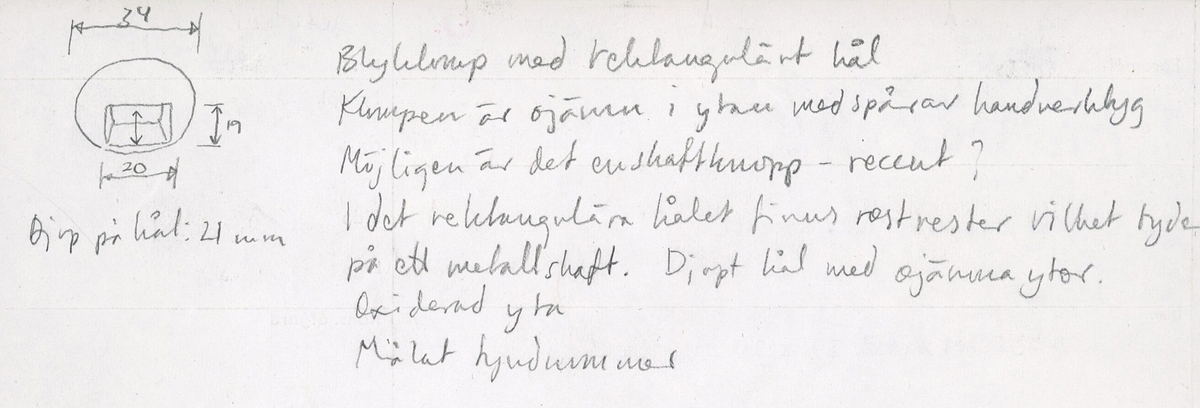 34
19
20
Djup på hål: 21 mm
Blyklump med rektangulärt hål
Klumpen är ojämn i ytan med spår av handverktyg
Möjligen är det en skaftknopp - recent?
I det rektangulära hålet finns rostrester vilket tyde
på ett metallskaft. Djupt hål med ojämna ytor.
Oxiderad yta
Målat fyndnummer